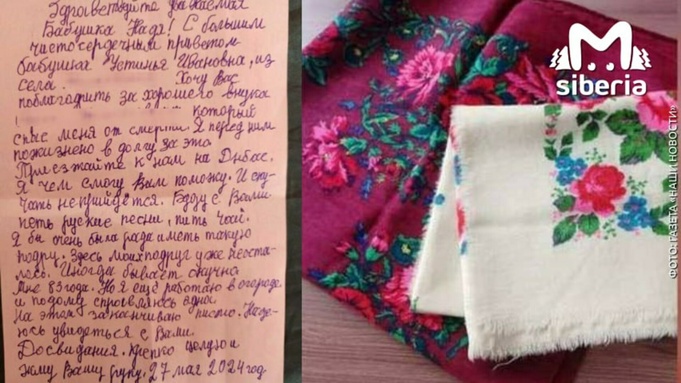 Здравствуйте уважаемая
Бабушка Надя! С большим
чистосердечным приветом
бабушка Устинья Ивановна, из
села. Хочу Вас
поблагодарить за хорошего внука
который
спас меня от смерти. Я перед ним
пожизнено в долгу за это
Приезжайте к нам на Днбас.
Я чем смогу Вам помогу. И ску-
чать не прийдется. Буду с Вами
петь руские песни, пить чай.
Я бы очень была рада иметь такую
подругу. Здесь моих подруг уже неоста-
лось. Иногда бывает скучно
Мне 83 года. Но я ещё работаю в огороде
и подому справляюсь одна.
На этом заканчиваю писмо. Наде-
юсь увидеться с Вами.
Досвидания. Крепко целую и
жму Вашу руку. 27 мая 2024 год
M
siberia
ФОТО: ГАЗЕТА «НАШИ НОВОСТИ»